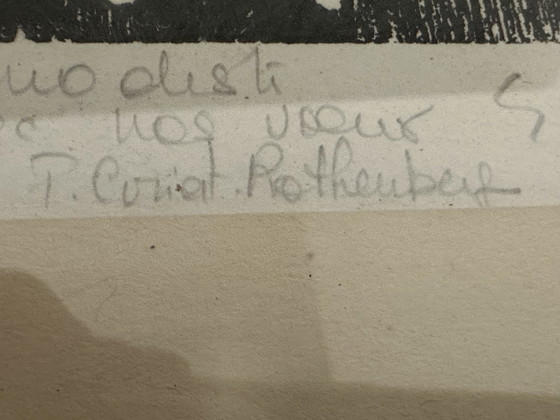 modesti
nos voeux
P. Curiat. Rothenberg